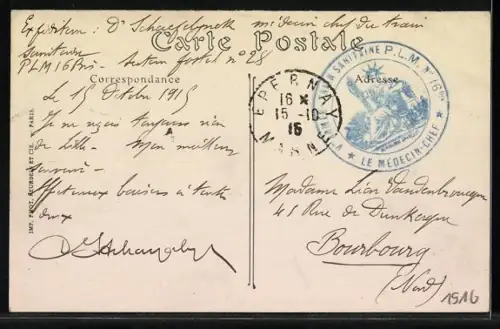 Expéditeur: Dr médecin chef du train
Sanitaire
Carte Postale
PLM 16 Bis - Secteur postal n° 28
Correspondance
Adresse
le 15 Octobre 1915
Je ne reçois toujours rien
de Lille - Mon meilleur
souvenir
Affectueux baisers à toutes
deux
EPERNAY
16
15-10
15
MARNE
TRAIN SANITAIRE P.L.M. N° 16 bis
★ LE MÉDECIN-CHEF ★
Madame Léon Vandenbroucque
45 Rue de Dunkerque
Bourbourg
(Nord)
1516
IMP. PHOT. NEURDEIN ET CIE. PARIS.